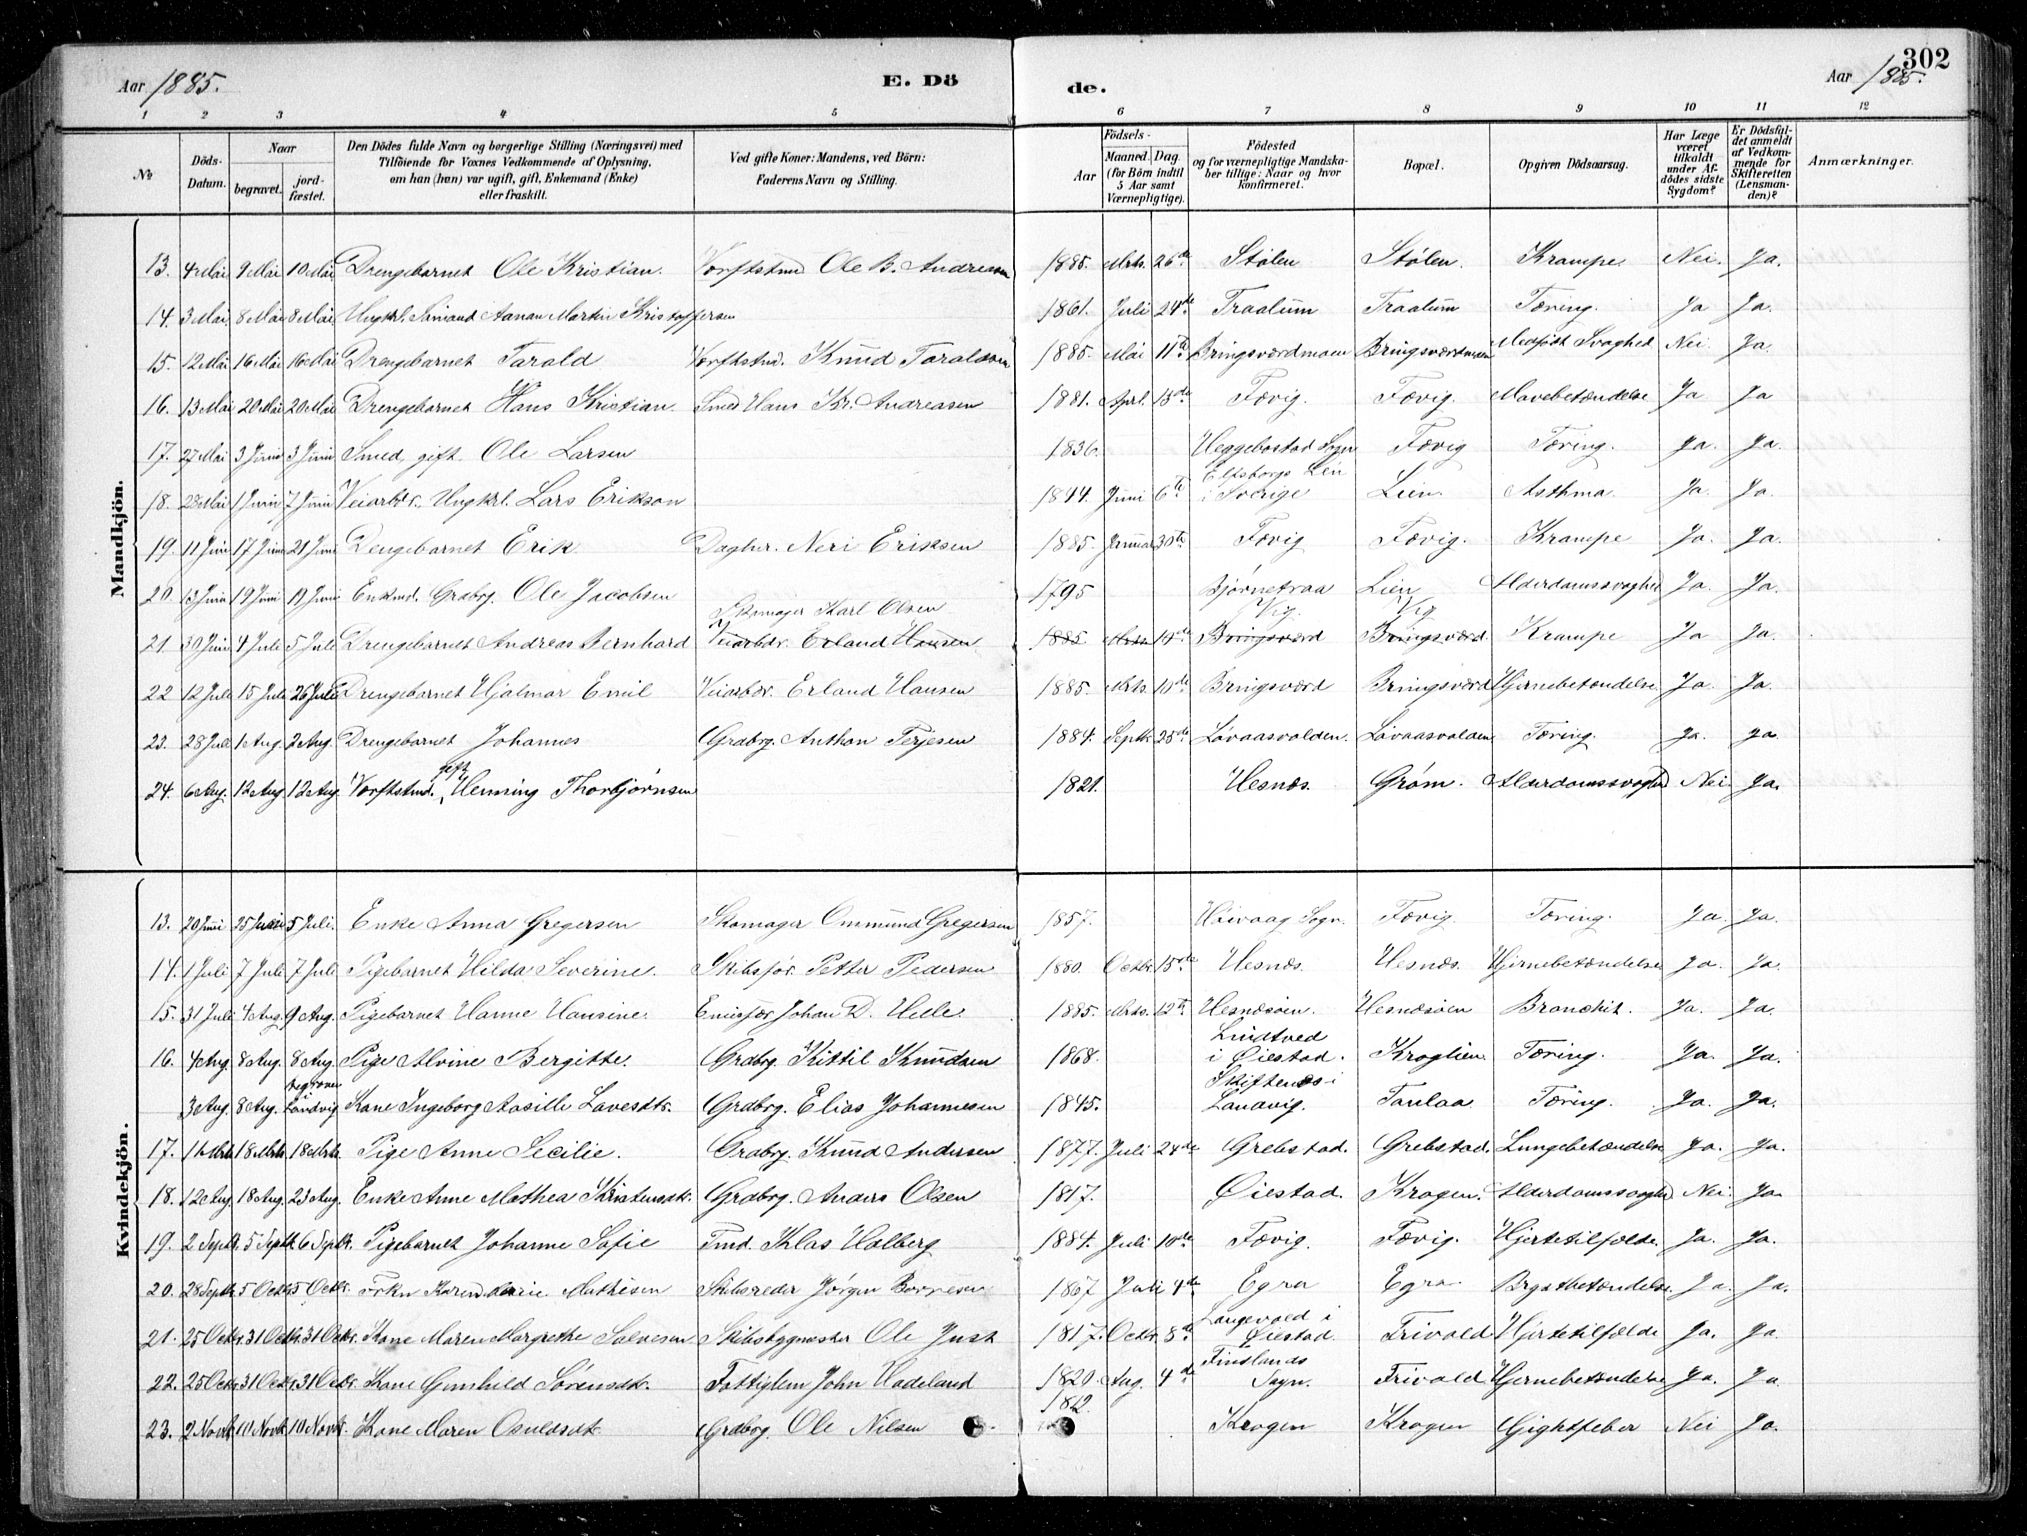 302
Aar 1885. E. Dö de. Aar 1885.
1 2 3 4 5 6 7 8 9 10 11 12
№ Döds-Datum. Naar begravet. jordfæstet. Den Dödes fulde Navn og borgerlige Stilling (Næringsvei) med Tilföiende for Voxnes Vedkommende af Oplysning, om han (hun) var ugift, gift, Enkemand (Enke) eller fraskilt. Ved gifte Koner: Mandens, ved Börn: Faderens Navn og Stilling. Födsels- Aar Maaned. Dag. (for Börn indtil 5 Aar samt Værnepligtige). Födested og for værnepligtige Mandskaber tillige: Naar og hvor konfirmeret. Bopæl. Opgiven Dödsaarsag. Har Læge været tilkaldt under Afdödes sidste Sygdom? Er Dödsfaldet anmeldt af Vedkommende for Skifteretten (Lensmanden)? Anmærkninger.
Mandkjön.
13. 4 Mai 9 Mai 10 Mai Drengebarnet Ole Kristian. Værftstmd Ole B. Andresen 1885. Mrts. 26de Stølen Stølen. Krampe Nei. Ja.
14. 3 Mai 8 Mai 8 Mai Ungkrl. Sømand Aanan Martin Kristoffersen 1861. Juli 24de Traalum Traalum Tæring. Ja Ja.
15. 12 Mai 16 Mai 16 Mai Drengebarnet Tarald Værftstmd. Knud Taraldsen 1885. Mai 11te Bringsværdmoen Bringsværdmoen Medfødt Svaghed Nei Ja
16. 13 Mai 20 Mai 20 Mai Drengebarnet Hans Kristian. Smed Hans Kr. Andreasen 1881. Aprl. 15de Fævig. Fævig. Mavebetændelse Ja Ja
17. 27 Mai 3 Juni 3 Juni Smed, gift. Ole Larsen 1836. Heggebostad Sogn Fævig Tæring. Ja. Ja.
18. 28 Mai 1 Juni 7 Juni Veiarbdr. Ungkrl. Lars Erikson 1844. Juni 6te Elfsborgs Len i Sverige Lien Asthma Ja. Ja.
19. 11 Juni 17 Juni 21 Juni Dengebarnet Erik Daglnr. Neri Eriksen 1885. Januar 30te Fævig Fævig. Krampe Ja. Ja.
20. 13 Juni 19 Juni 19 Juni Enkmd. Grdbrg. Ole Jacobsen 1795 Bjørnetraa Lien Alderdomssvaghed Ja. Ja.
Skomager Karl Olsen Vig. Vig
21. 30 Juni 4 Juli 5 Juli Drengebarnet Andreas Bernhard Veiarbdr. Erland Hansen 1885 Mrts 14de Bringsværd Bringsværd. Krampe Ja Ja.
22 12 Juli 15 Juli 26 Juli Drengebarnet Hjalmar Emil Veiarbdr. Erland Hansen 1885. Mrts. 10de Bringsværd Bringsværd Hjernebetændelse. Ja. Ja.
23. 28 Juli 1 Aug. 2 Aug. Drengebarnet Johannes Grdbrg. Anthon Terjesen 1884. Septbr. 25de Løvaasvolden. Løvaasvolden Tæring. Ja. Ja.
gift
24. 6 Aug. 12 Aug. 12 Aug. Værftstmd. Henning Thorbjørnsen 1821. Hesnæs. Grøm. Alderdomssvaghed Nei. Ja.
Kvindekjön.
13. 20 Juni 25 Juni 5 Juli. Enke Anna Gregersen Skomager Ommund Gregersen 1857. Høivaag Sogn. Fævig. Tæring. Ja. Ja.
14. 1 Juli 7 Juli 7 Juli Pigebarnet Hilda Severine. Skibsfør. Petter Pedersen 1880. Octbr. 15de Hesnæs. Hesnæs. Hjernebetændelse Ja. Ja.
15. 31 Juli 4 Aug. 9 Aug. Pigebarnet Hanne Hansine. Johan D. Helle. 1885. Mrts. 12te Hesnæsøen. Hesnæsøen Bronchit. Ja. Ja.
16. 4 Aug. 8 Aug. 8 Aug. Pige Alvine Bergitte. Grdbrg. Kittil Knudsen 1868. Lindtved i Øiestad. Kroglien Tæring. Ja. Ja.
3 Aug. 8 Aug. begraven i Landvig Kone Ingeborg Aasille Lavesdtr. Grdbrg. Elias Johannesen 1845. Skiftenæs i Landvig. Tanlaa Tæring. Ja. Ja.
17. 14 Mrts 18 Mrts. 18 Mrts. Pige Anne Secilie. Grdbrg. Knud Andersen 1877. Juli 24de Grebstad. Grebstad. Lungebetændelse Ja. Ja.
18. 12 Aug 18 Aug. 23 Aug. Enke Anne Mathea Kristensdtr. Grdbrg. Anders Olsen 1817. Øiestad. Krogen. Alderdomssvaghed Nei Ja.
19. 2 Septbr. 5 Septbr. 6 Septbr. Pigebarnet Johanne Sofie Tmd. Klas Halberg 1884. Juli 10de Fævig. Fævig. Hjertetilfælde. Ja. Ja.
20. 28 Septbr. 5 Octbr. 5 Octbr. Frkn Karen Marie Mathisen Skibsreder Jørgen 1867 Juli 4de Egra Egra Brystbetændelse. Ja. Ja.
21. 25 Octbr. 31 Octbr. 31 Octbr. Kone Maren Margrethe Salvesen Skibsbygmester Ole Just 1817. Octbr. 8de Langevold i Øiestad. Frivold Hjertetilfælde Ja. Ja.
22. 25 Octbr. 31 Octbr. 31 Octbr. Kone Gunhild Sørensdtr. Fattiglem John Hadeland 1820. Aug. 4de Finslands Sogn. Frivold Hjernebetændelse Ja. Ja.
23. 2 Novbr 10 Novbr. 10 Novbr. Kone Maren Osuldsdtr Grdbrg. Ole Nilsen 1812. Krogen Krogen Gightfeber Nei Ja.